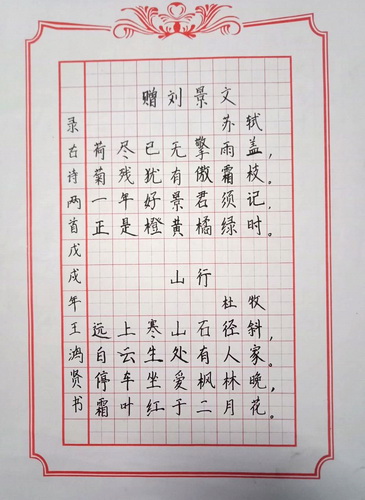 赠刘景文
苏轼
荷尽已无擎雨盖，
菊残犹有傲霜枝。
一年好景君须记，
正是橙黄橘绿时。
山行
杜牧
远上寒山石径斜，
白云生处有人家。
停车坐爱枫林晚，
霜叶红于二月花。
录古诗两首戊戌年王鸿贤书